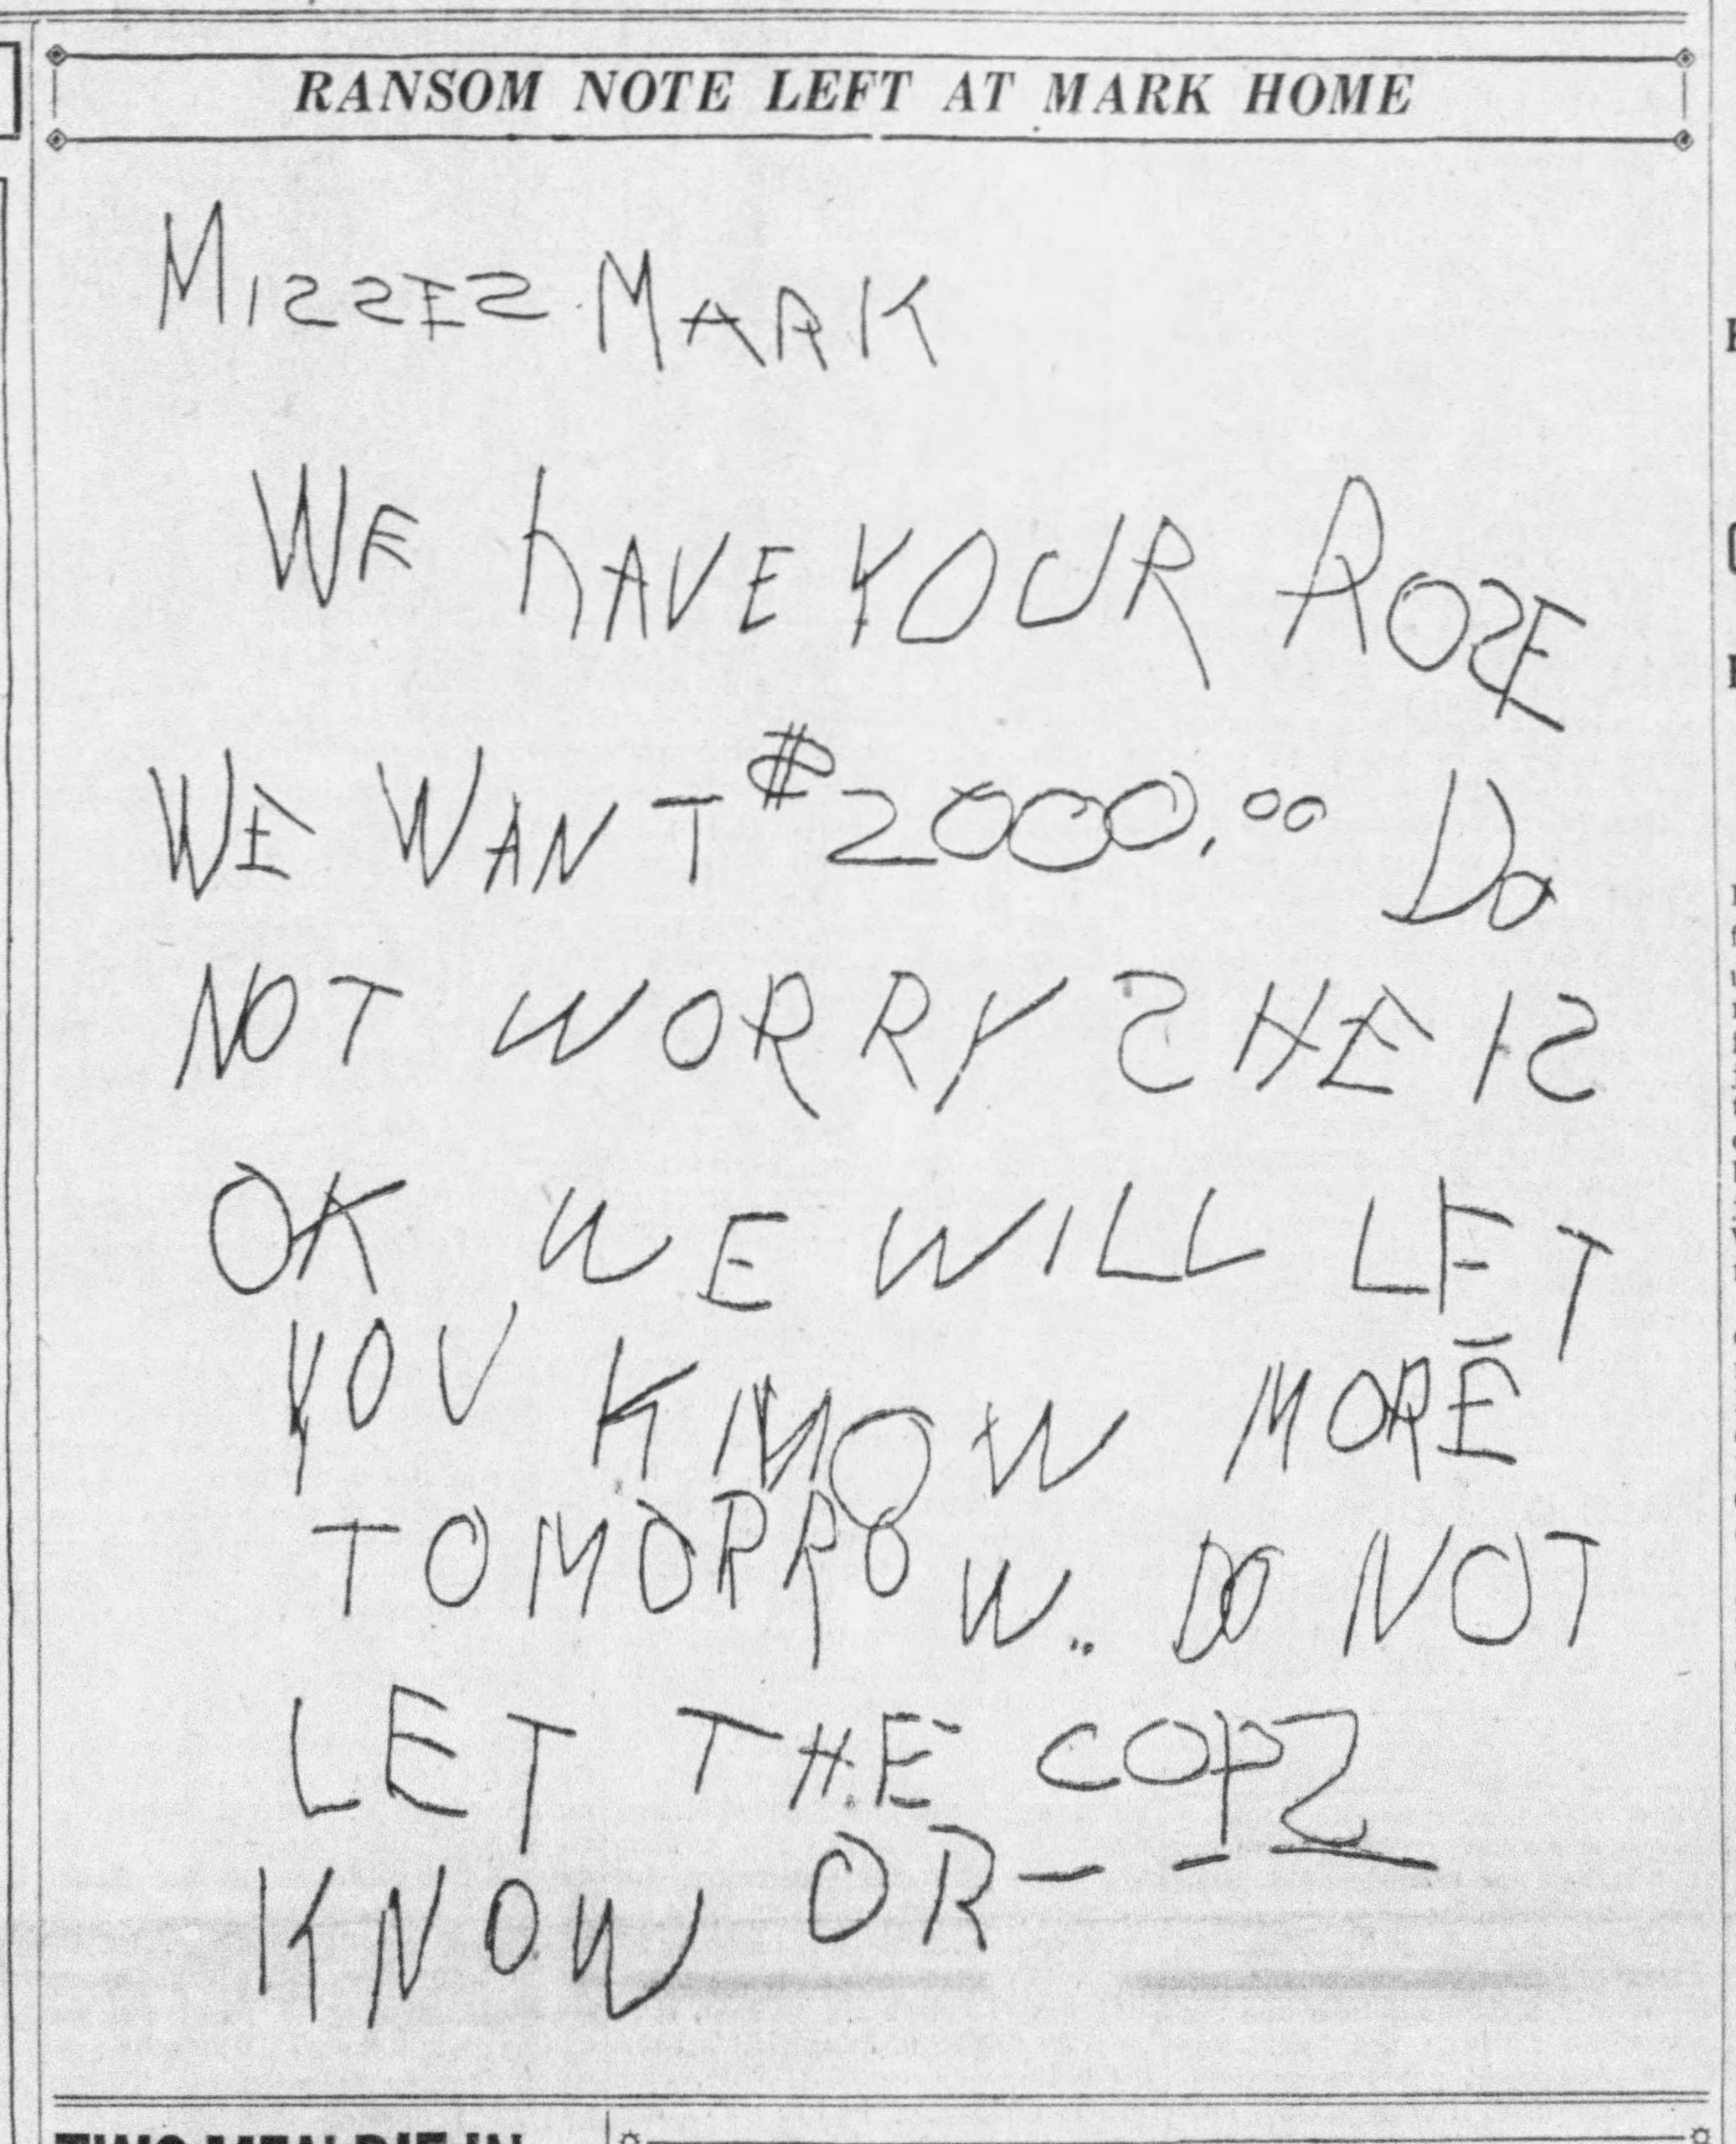 RANSOM NOTE LEFT AT MARK HOME
MISSES MARK
WE HAVE YOUR ROSE
WE WANT $2000.00 DO
NOT WORRY SHE IS
OK WE WILL LET
YOU KNOW MORE
TOMORROW.. DO NOT
LET THE COPS
KNOW OR—
TWO MEN DIE IN